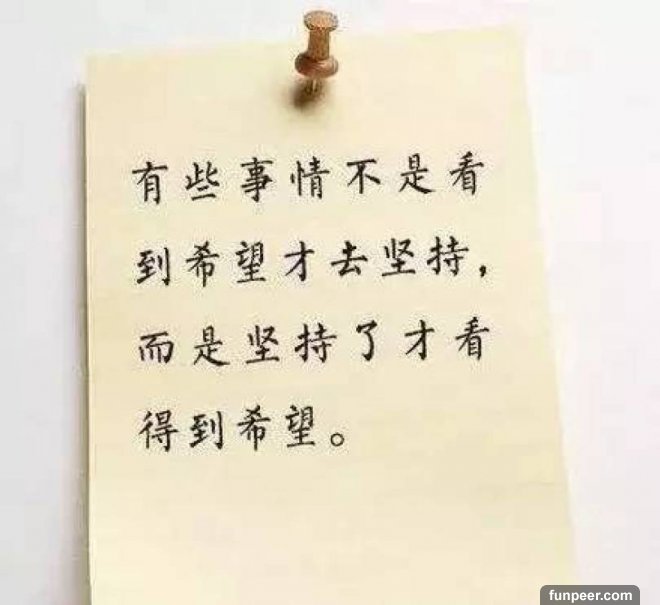 有些事情不是看
到希望才去坚持，
而是坚持了才看
得到希望。
funpeer.com